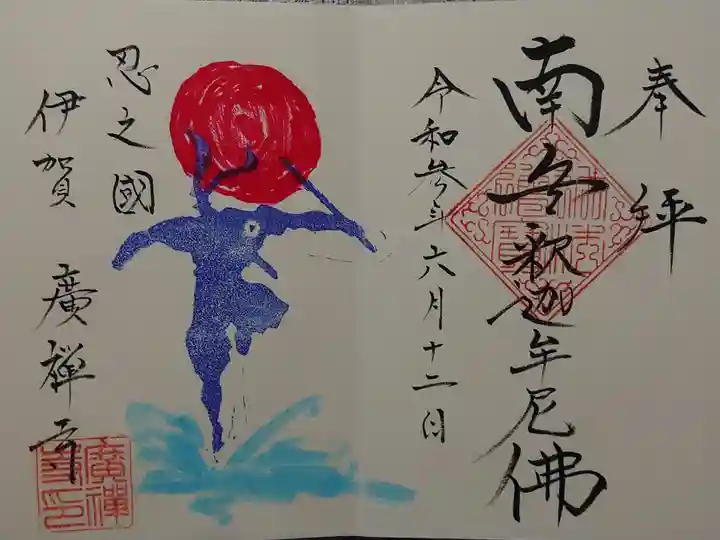 奉拝
南無釈迦牟尼佛
令和参年六月十二日
忍之國
伊賀 廣禅寺
廣禅寺印